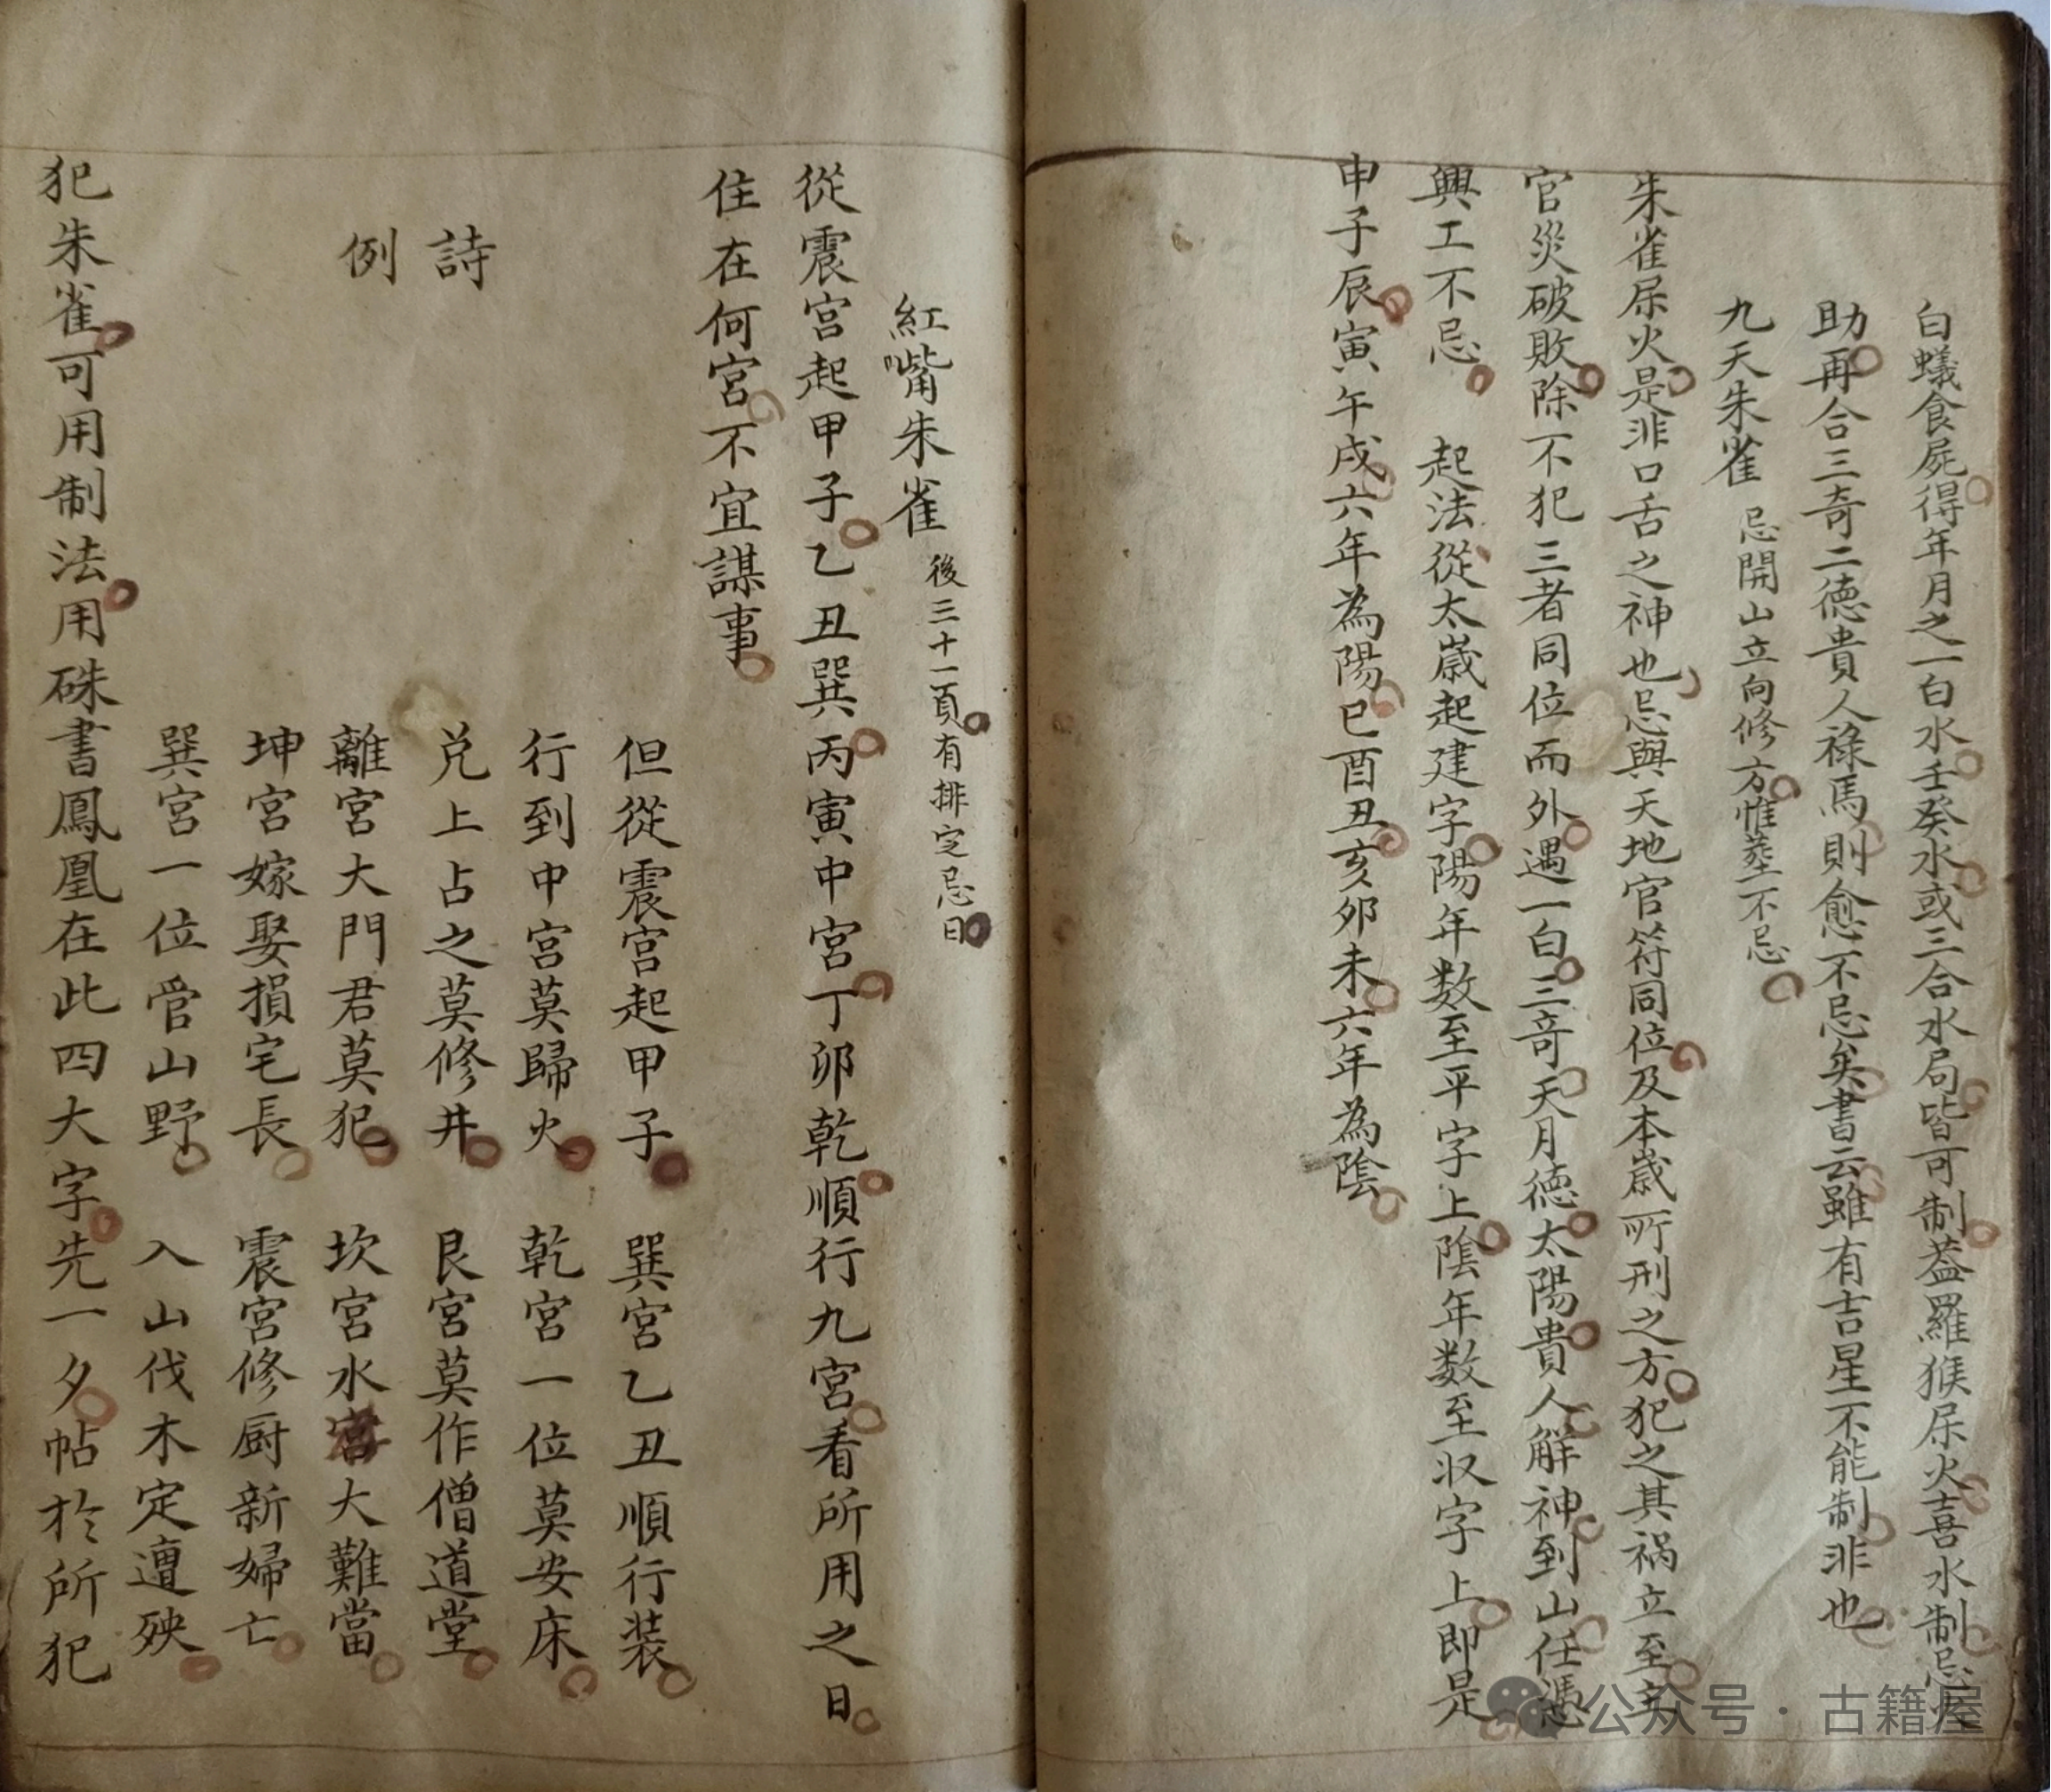 白蟻食屍得年月之一白水壬癸水或三合水局皆可制葢羅猴尿火喜水制忌火
助再合三奇二徳貴人祿馬則愈不忌矣書云雖有吉星不能制非也
九天朱雀 忌開山立向修方惟塟不忌
朱雀尿火是非口舌之神也忌與天地官符同位及本歲所刑之方犯之其禍立至主
官災破敗除不犯三者同位而外遇一白三奇天月徳太陽貴人解神到山任憑
興工不忌 起法從太歲起建字陽年数至平字上陰年数至収字上即是
申子辰寅午戌六年為陽巳酉丑亥卯未六年為陰
紅嘴朱雀 後三十一頁有排定忌日
從震宮起甲子乙丑巽丙寅中宮丁卯乾順行九宮看所用之日
住在何宮不宜謀事
詩
例
但從震宮起甲子 巽宮乙丑順行装
行到中宮莫歸火 乾宮一位莫安床
兌上占之莫修井 艮宮莫作僧道堂
離宮大門君莫犯 坎宮水大難當
坤宮嫁娶損宅長 震宮修厨新婦亡
巽宮一位管山野 入山伐木定遭殃
犯朱雀可用制法用硃書鳳凰在此四大字先一夕帖於所犯
公众号·古籍屋